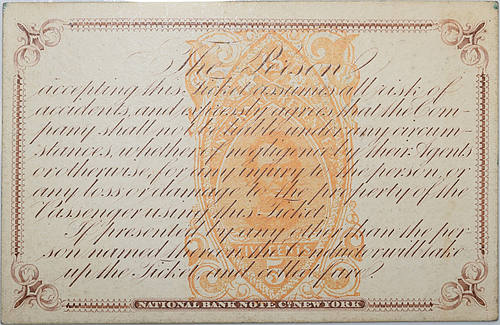 The Person
accepting this Ticket assumes all risk of
accidents, and expressly agrees that the Com-
pany shall not be liable under any circum-
stances, whether of negligence by their Agents
or otherwise, for any injury to the person, or
any loss or damage to the property of the
Passenger using this Ticket.
If presented by any other than the per-
son named thereon the Conductor will take
up the Ticket and collect fare.
NATIONAL BANK NOTE Co. NEW YORK